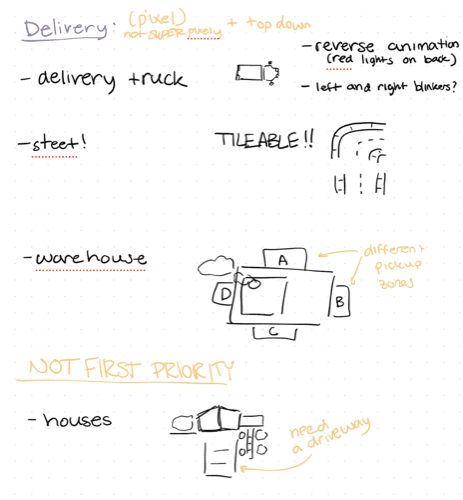 Delivery: (pixel) + top down
not SUPER pixely
- delivery truck
- reverse animation
(red lights on back)
- left and right blinkers?
- steet!
TILEABLE!!
- warehouse
A
D
B
C
different
pickup
zones
NOT FIRST PRIORITY
- houses
need
a driveway